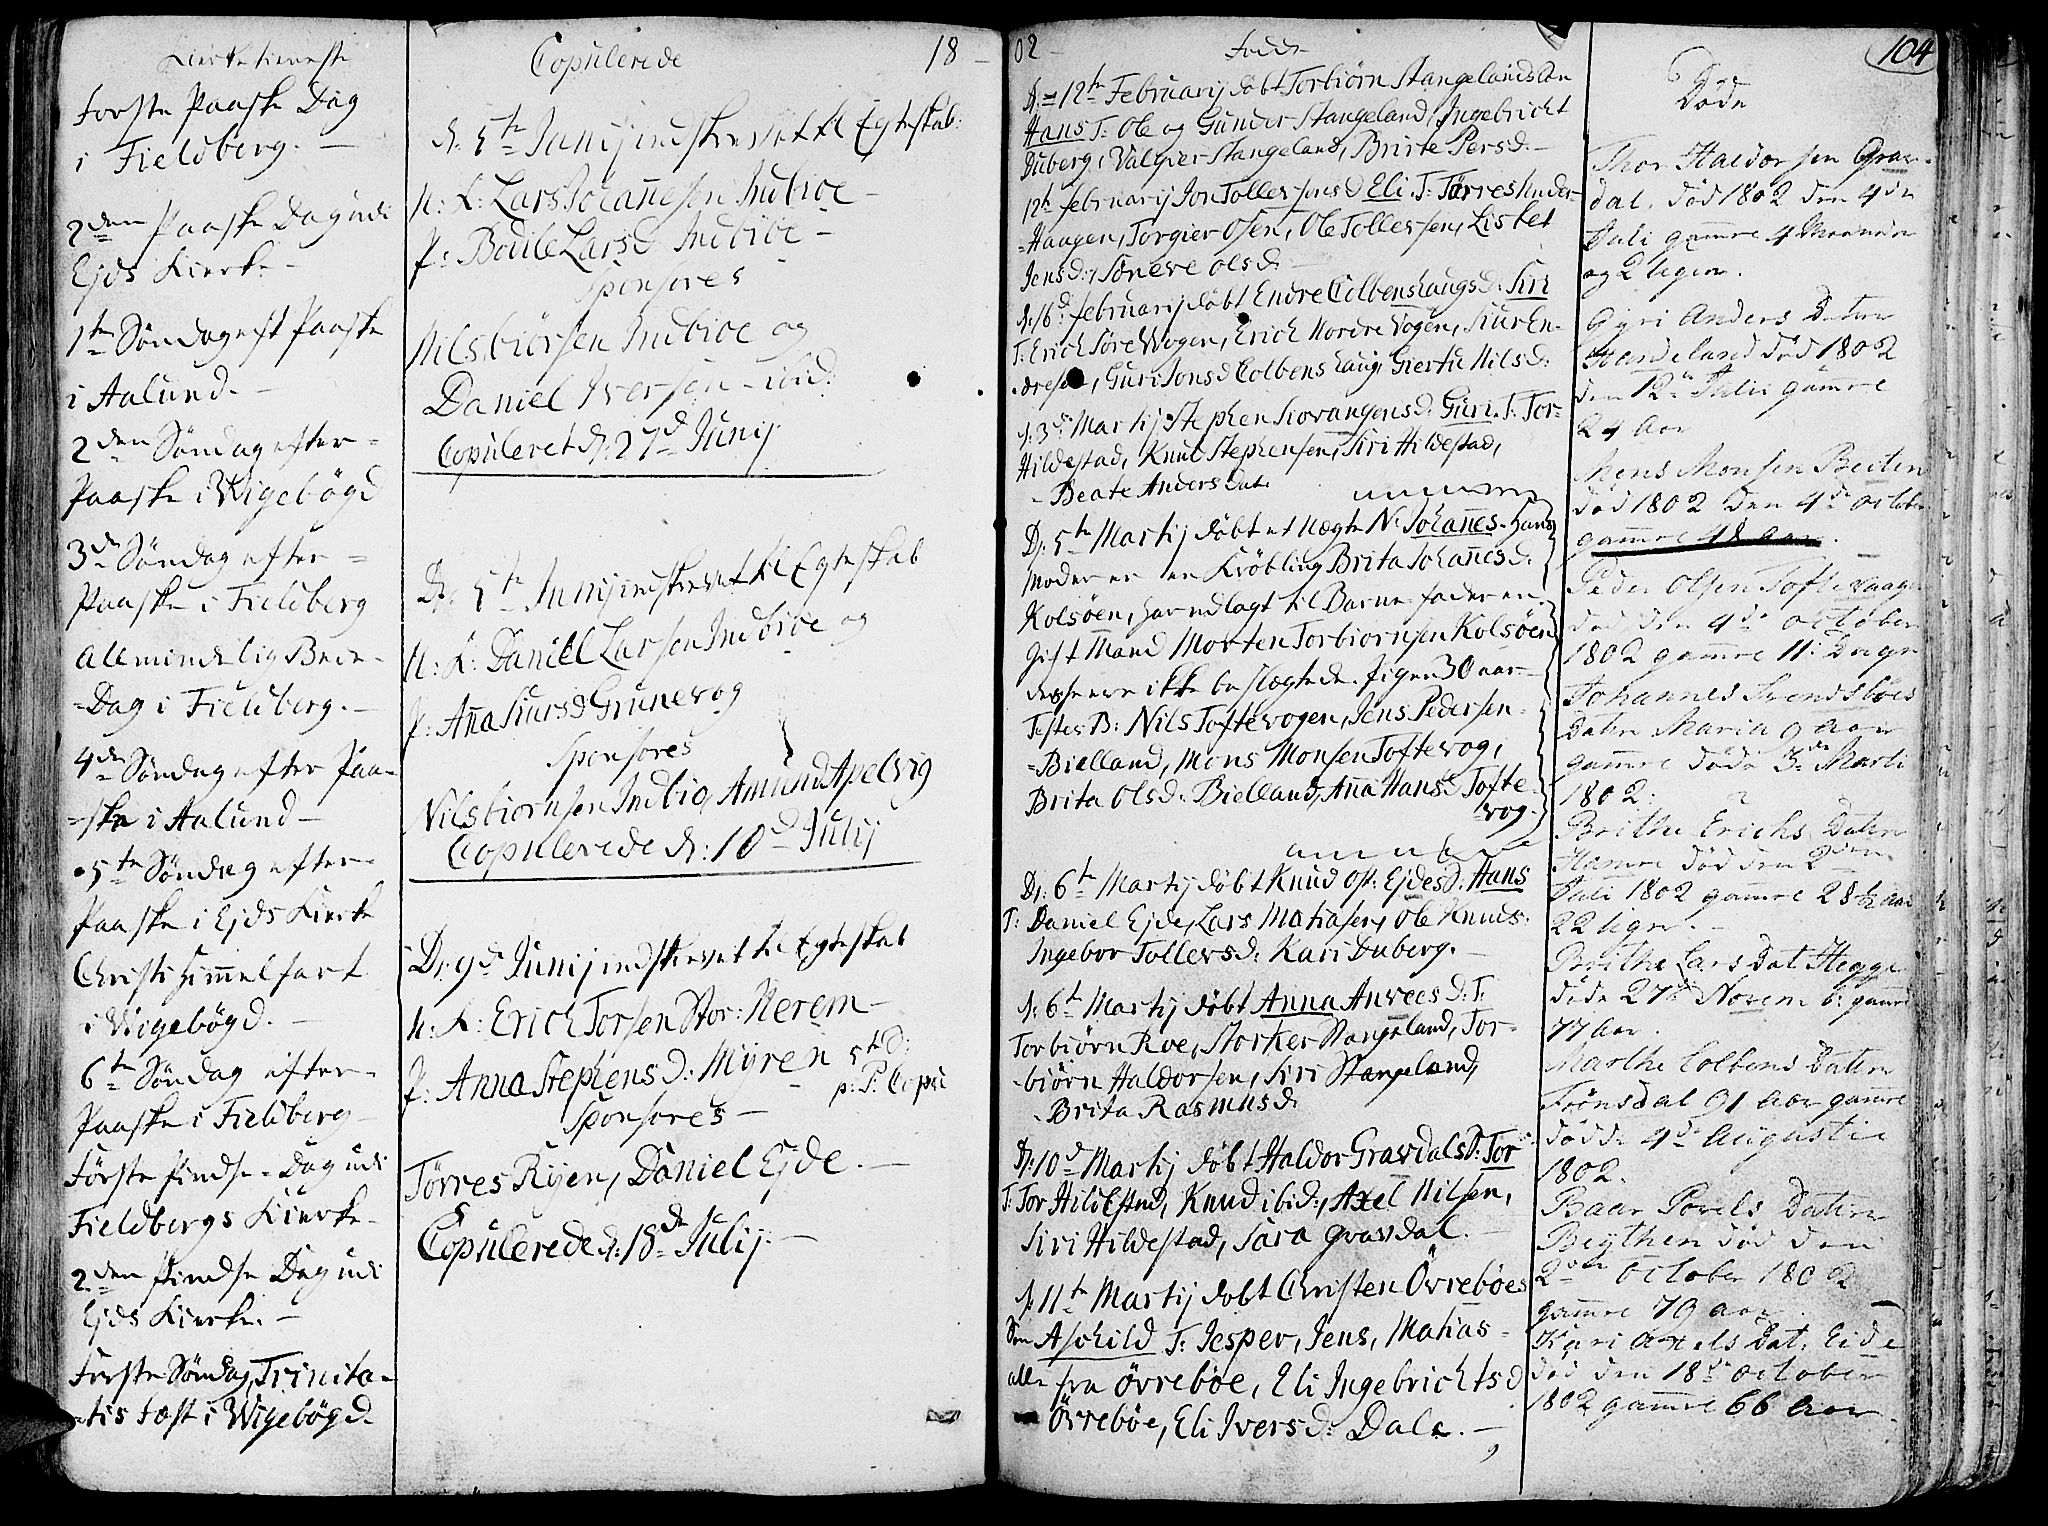 Kierketieneste
Forste Paaske Dag
i Fieldberg. —
2den Paaske Dag udi
Ejds Kierke —
1te Søndag eft Paaske
i Aalund. —
2den Søndag efter =
Paaske i Wigebøgd
3de Søndag efter =
Paaske i Fieldberg
Allmindelig Bede-
-Dag i Fieldberg. —
4de Søndag efter Paa-
=ske i Aalund —
5te Søndag efter
Paaske i Ejds Kierke
Christi Himmelfart
i Wigebøgd. —
6te Søndag efter =
Paaske i Fieldberg
Første Pindse = Dag udi
Fieldbergs Kierke —
2den Pindse Dag udi
Ejds Kierke. —
Forste Søndag, Trinita=
=tis Fæst i Wigebøgd.
Copulerede 18 —
d. 5te Junij indskrevet til Egteskab:
U: K: Lars Johannesen Indbioe —
P: Bodile Larsd Indbioe —
Sponsores
Nils biørsen Indbioe og
Daniel Iversen — ibid.
Copuleret d: 27d Junij
D: 5te Junij indskrevet til Egteskab
U: K: Daniel Larsen Indbioe og
P: Anna Siursd Grunevog
Sponsores
Nils biornsen Indbio, Amund Apelvig
Copulerede d: 10d Julij
D: 9d Junij indskrevet til Egteskab
U: K: Erich Torsen Stor: Nerem —
P: Anna Stephensd: Mÿren 5td:
Sponsores — p: P: Copu
Tørres Rÿen, Daniel Ejde. —
Copulerede d: 18de Julij. —
02 — Fødde
d: 12te Februarij døbt Torbiørn Stangelands Søn
Hans T: Ole og Gunder Stangeland, Ingebricht
Duberg, Valgier Stangeland, Brite Persd. —
12te februarij Jon Tollefsensd Eli. T: Tørres Under-
=Haugen, Torgier Osen, Ole Tollefsen, Lisbet
Jensd:, Søneve olsd: —
d: 16d: februarij døbt Endre Colbenshaugsd: Siri
T: Erich Søre Vogen, Erich Nordre Vogen, Siur En-
dresen, Guri Jonsd Colbenshaug, Giertu Nilsd:
d: 3d: Martij Stephen Skovangensd: Guri. T: Tor-
Hildestad, Knud Stephensen, Siri Hildestad,
- Beate Anders Dat.
D: 5te Martij døbt et uægte N: Johannes. Hans
Moder er en Krøbling Brita Johannesd:
Kolsøen, har udlagt til Barne fader en
gift Mand Morten Torbiornsen Kolsøen
desse ere ikke beslægtede. Pigen 30 aar
Testes B: Nils Toftevogen, Jens Pedersen
=Bielland, Mons Monsen Toftevog,
Brita Olsd: Bielland, Anna Hansd Tofte
vog.
D: 6te Martij døbt Knud Ost: Ejdesd: Hans
T: Daniel Ejde, Lars Matiasen, Ole Knuds.
Ingebor Tollevsd: Kari Duberg. —
d: 6t Martij døbt Anna Anveesd: T:
Torbiørn Roe, Storker Stangeland, Tor-
-biørn Haldorsen, Siri Stangeland,
- Brita Rasmusd.
D: 10d Martij døbt Haldor Gravdals D: Tor
T: Tor Hildestad, Knud ibid:, Axel Nilsen,
Siri Hildestad, Sara Gravdal. —
d: 11te Martij døbt Christen Övrebøes
Søn Aschild T: Jesper, Jens, Matias —
alle fra Övrebøe, Eli Ingebrichtsd
Övrebøe, Eli Iversd: Dale. —
104
Døde
Thor Haldorsen Grav-
dal, død 1802 den 4de
Juli gamre 4 Maaneder
og 2 Uger.
Gÿri Anders Datter
Handeland død 1802
den 12te Julii gamre
24 Aar
Mons Monsen Beiten
død 1802 den 4de October
gamre 48 aar.
Peder Olsen Toftevaag
død den 4de October
1802 gamre 11 Dage
Johannes Svendsbøes
Datter Maria 9 Aar
gamre døde 3de Marti
1802.
Brithe Erichs Datter
Hamre død den 2den
Juli 1802 gamre 28½ aar
22 Uger. —
Brithe Lars Dat Hegge
døde 27de Novemb: gamre
77 Aar.
Marthe Colbens Datter
Frönsdal 91 Aar gamre
døde 4de Augustii
1802.
Baar Povels Datter
Beÿthen død den
2den October 1802
gamre 79 aar.
Kari Axels Dat. Eide
død den 18de October
1802 gamre 66 Aar.